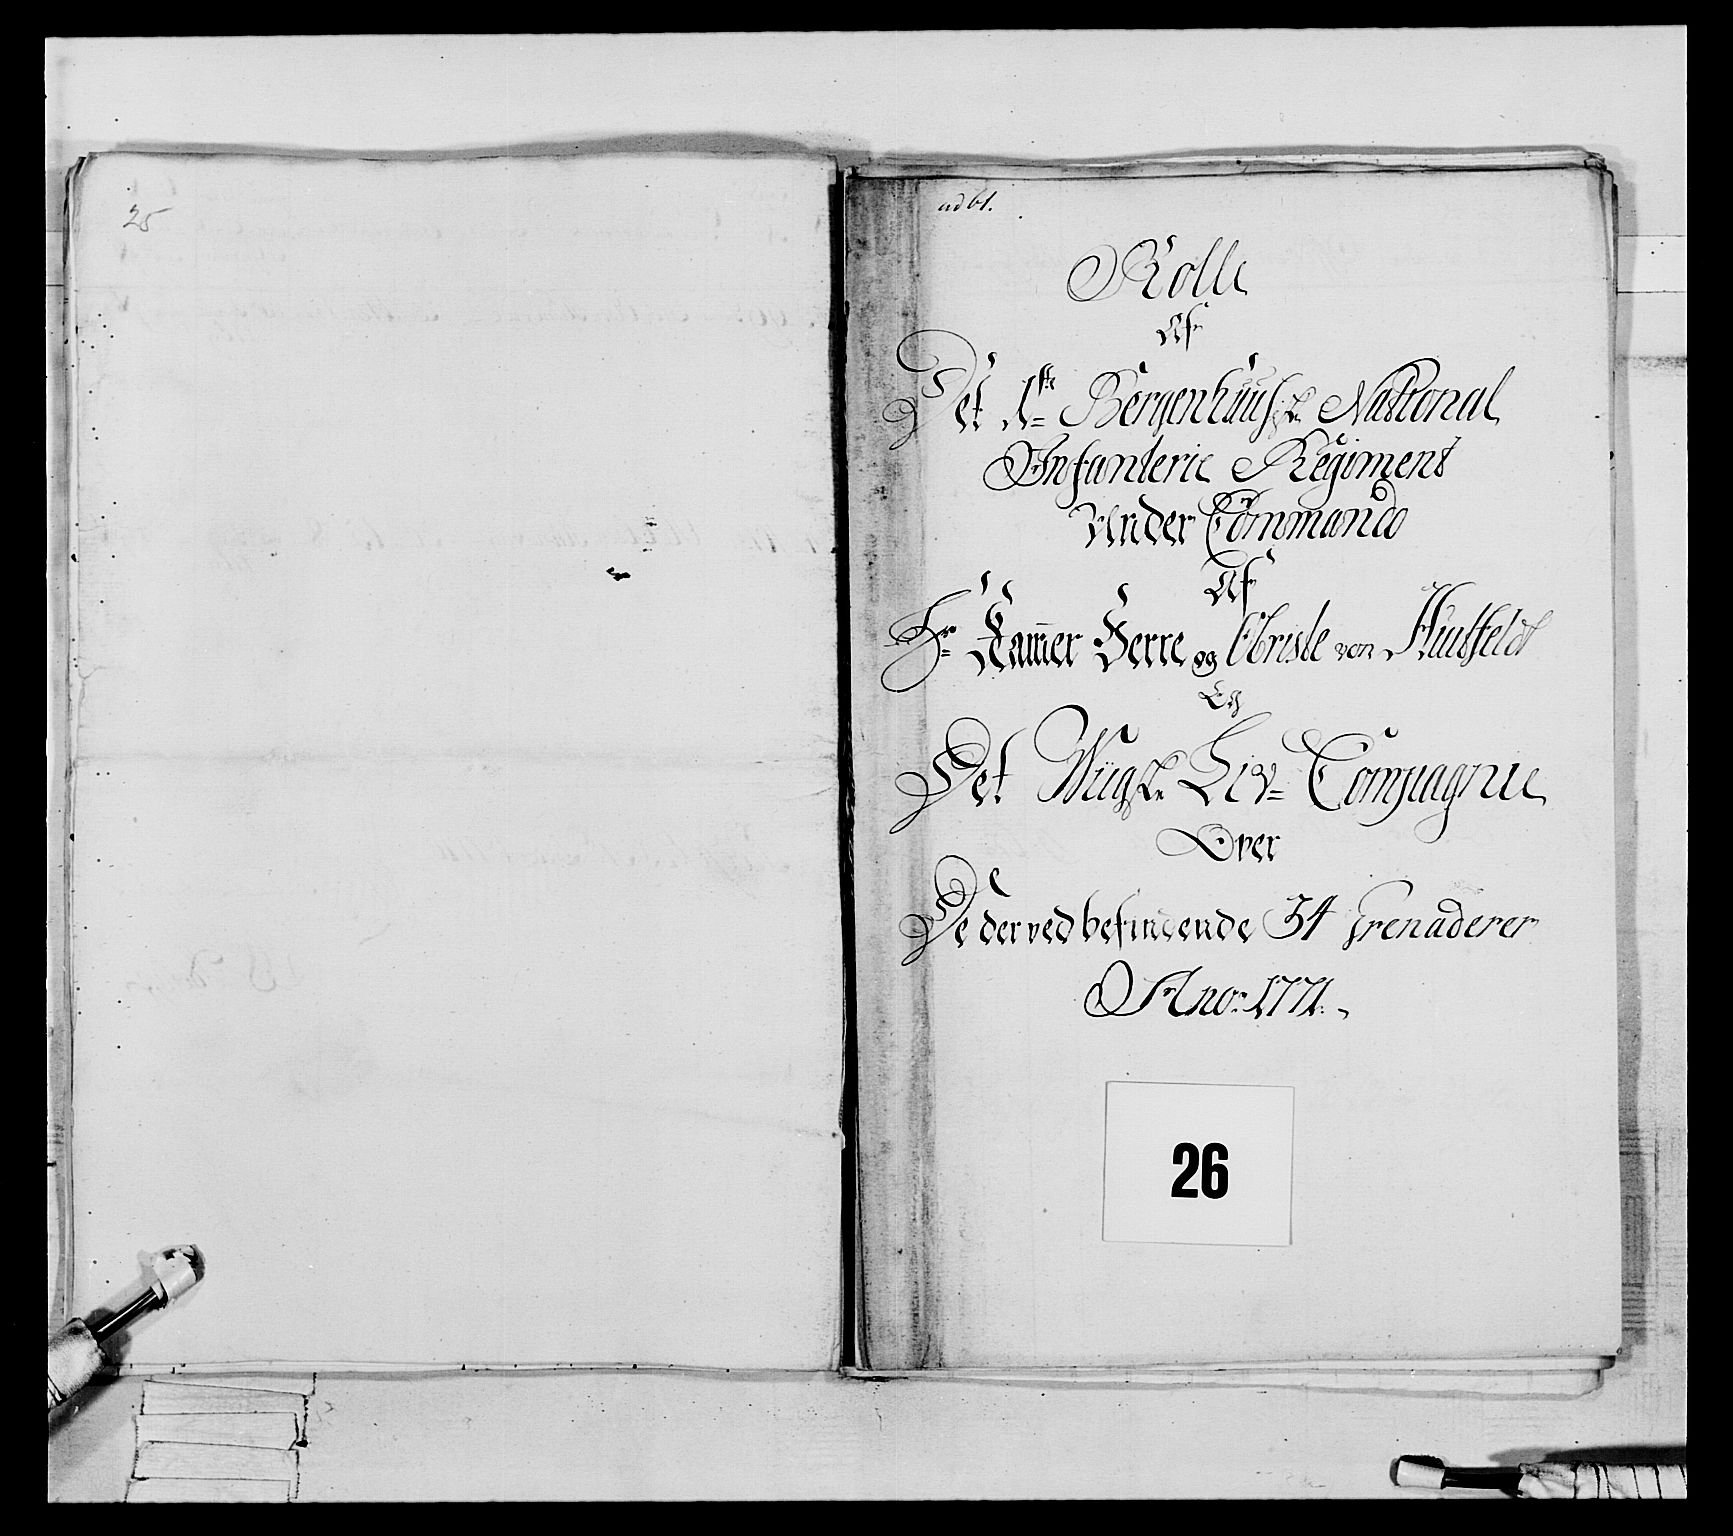 25
ad 61.
Rolle
Af
Det 1ste Bergenhuusske National
Infanterie Regiment
Under Commando
Af
Hr Kam̄er Herre og Obriste von Huitfeldt
Og
Det Wiigske Liv- Compagnie
Over
De derved befindende 34 Grenaderer
Ano: 1771.
26